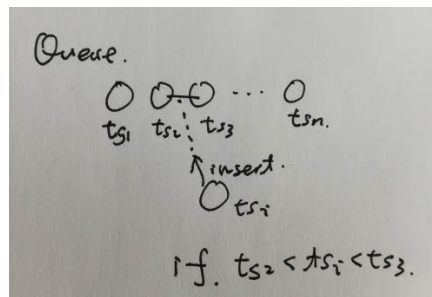 Queue.
ts1 ts2 ts3 ... tsn.
insert.
tsi
if. ts2 < tsi < ts3.